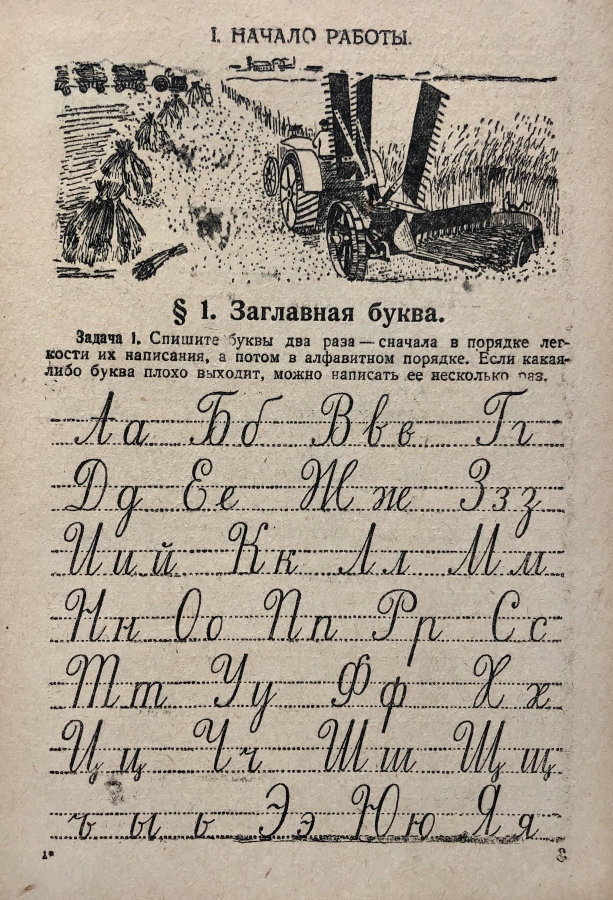 I. НАЧАЛО РАБОТЫ.
§ 1. Заглавная буква.
Задача 1. Спишите буквы два раза — сначала в порядке лег-
кости их написания, а потом в алфавитном порядке. Если какая-
либо буква плохо выходит, можно написать ее несколько раз.
Аа Бб Ввв Гг
Дд Ее Жж Ззз
Иий Кк Лл Мм
Нн Оо Пп Рр Сс
Тт Уу Фф Хх
Цц Чч Шш Щщ
ъ ы ь Ээ Юю Яя
1* 3